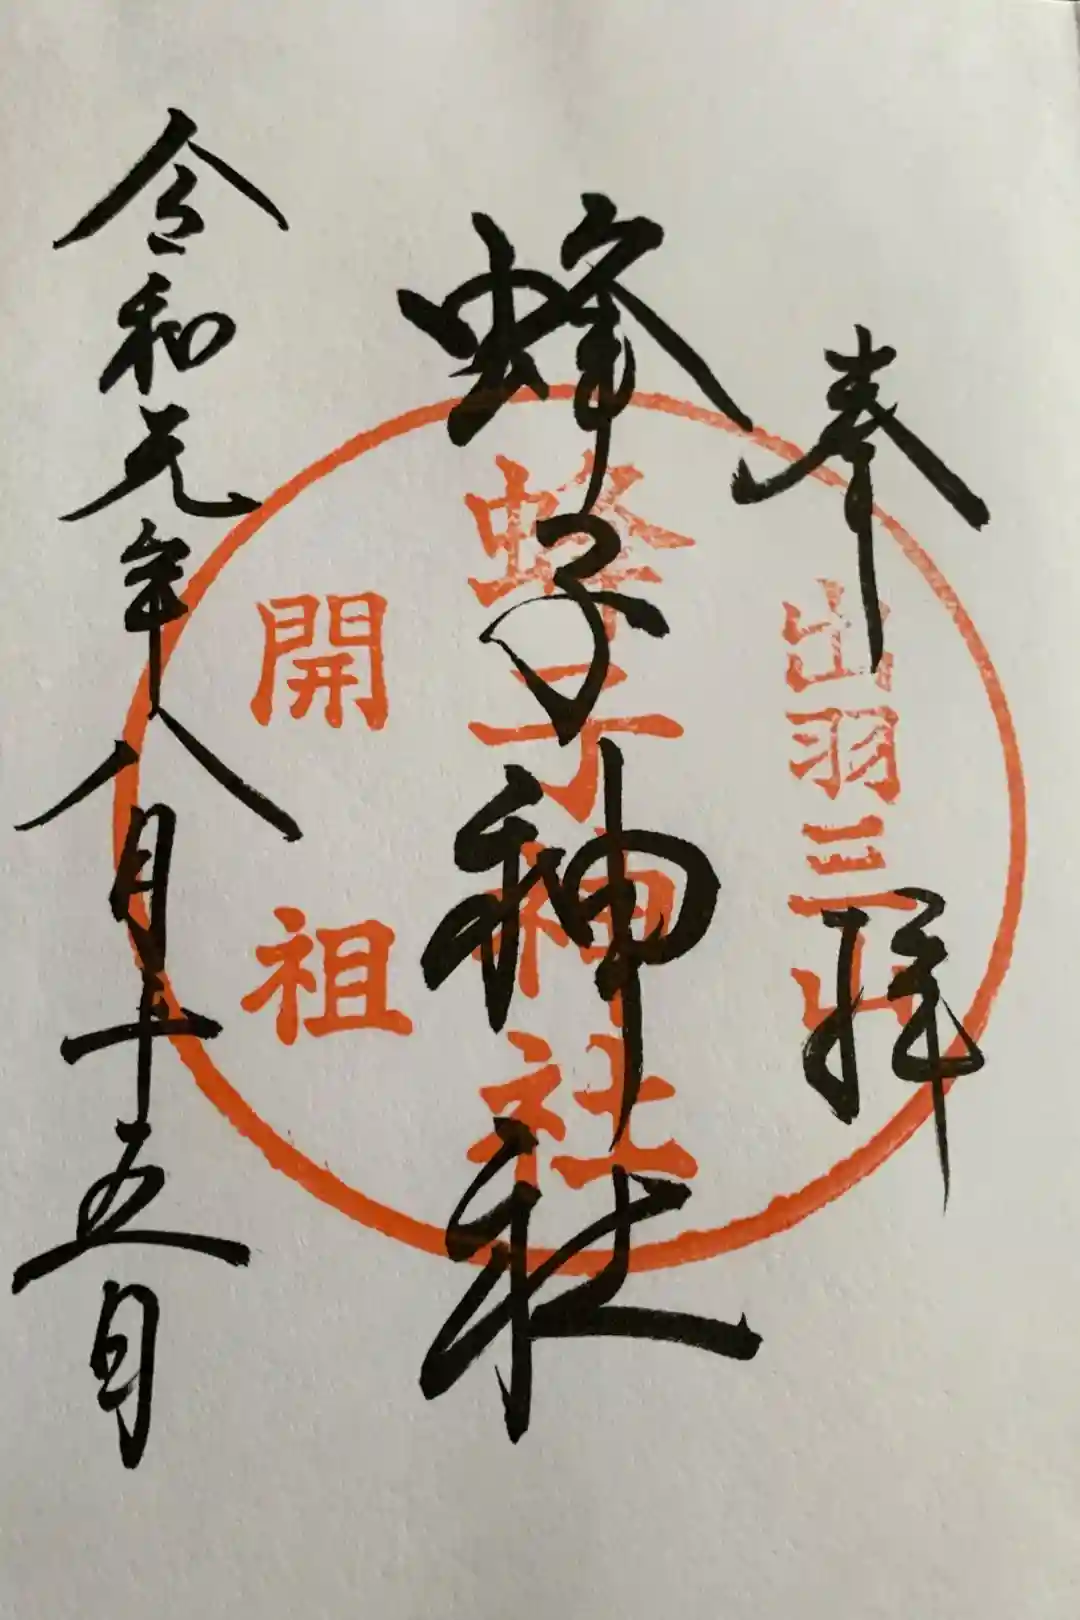 奉拝
出羽三山
蜂子神社
蜂子神社
開祖
令和元年八月十五日